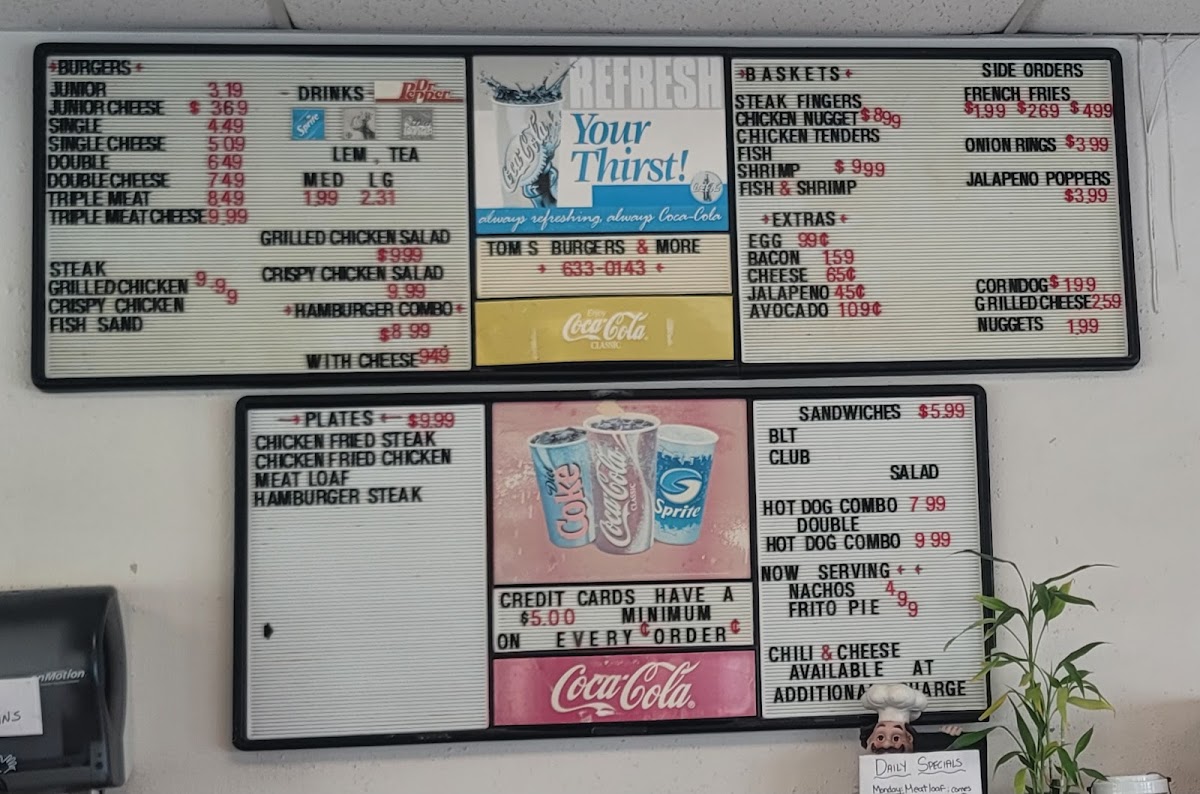 BURGERS
JUNIOR 3.19
JUNIOR CHEESE $ 3.69
SINGLE 4.49
SINGLE CHEESE 5.09
DOUBLE 6.49
DOUBLE CHEESE 7.49
TRIPLE MEAT 8.49
TRIPLE MEAT CHEESE 9.99
STEAK
GRILLED CHICKEN 9.99
CRISPY CHICKEN
FISH SAND
- DRINKS - Dr Pepper
Sprite
LEM , TEA
MED LG
1.99 2.31
GRILLED CHICKEN SALAD
$9.99
CRISPY CHICKEN SALAD
9.99
HAMBURGER COMBO
$8.99
WITH CHEESE 9.49
REFRESH
Your
Thirst!
Coca-Cola
always refreshing, always Coca-Cola
TOM S BURGERS & MORE
633-0143
Enjoy
Coca-Cola
CLASSIC
BASKETS
STEAK FINGERS
CHICKEN NUGGET $8.99
CHICKEN TENDERS
FISH
SHRIMP $ 9.99
FISH & SHRIMP
EXTRAS
EGG 99¢
BACON 1.59
CHEESE 65¢
JALAPENO 45¢
AVOCADO 109¢
SIDE ORDERS
FRENCH FRIES
$1.99 $2.69 $4.99
ONION RINGS $3.99
JALAPENO POPPERS
$3.99
CORNDOG $1.99
GRILLED CHEESE 2.59
NUGGETS 1.99
PLATES $9.99
CHICKEN FRIED STEAK
CHICKEN FRIED CHICKEN
MEAT LOAF
HAMBURGER STEAK
Diet
Coke
Coca-Cola
CLASSIC
Sprite
CREDIT CARDS HAVE A
$5.00 MINIMUM
ON EVERY ¢ORDER¢
Coca-Cola
SANDWICHES $5.99
BLT
CLUB
SALAD
HOT DOG COMBO 7.99
DOUBLE
HOT DOG COMBO 9.99
NOW SERVING
NACHOS 4.99
FRITO PIE
CHILI & CHEESE
AVAILABLE AT
DAILY SPECIALS
Monday: Meatloaf: